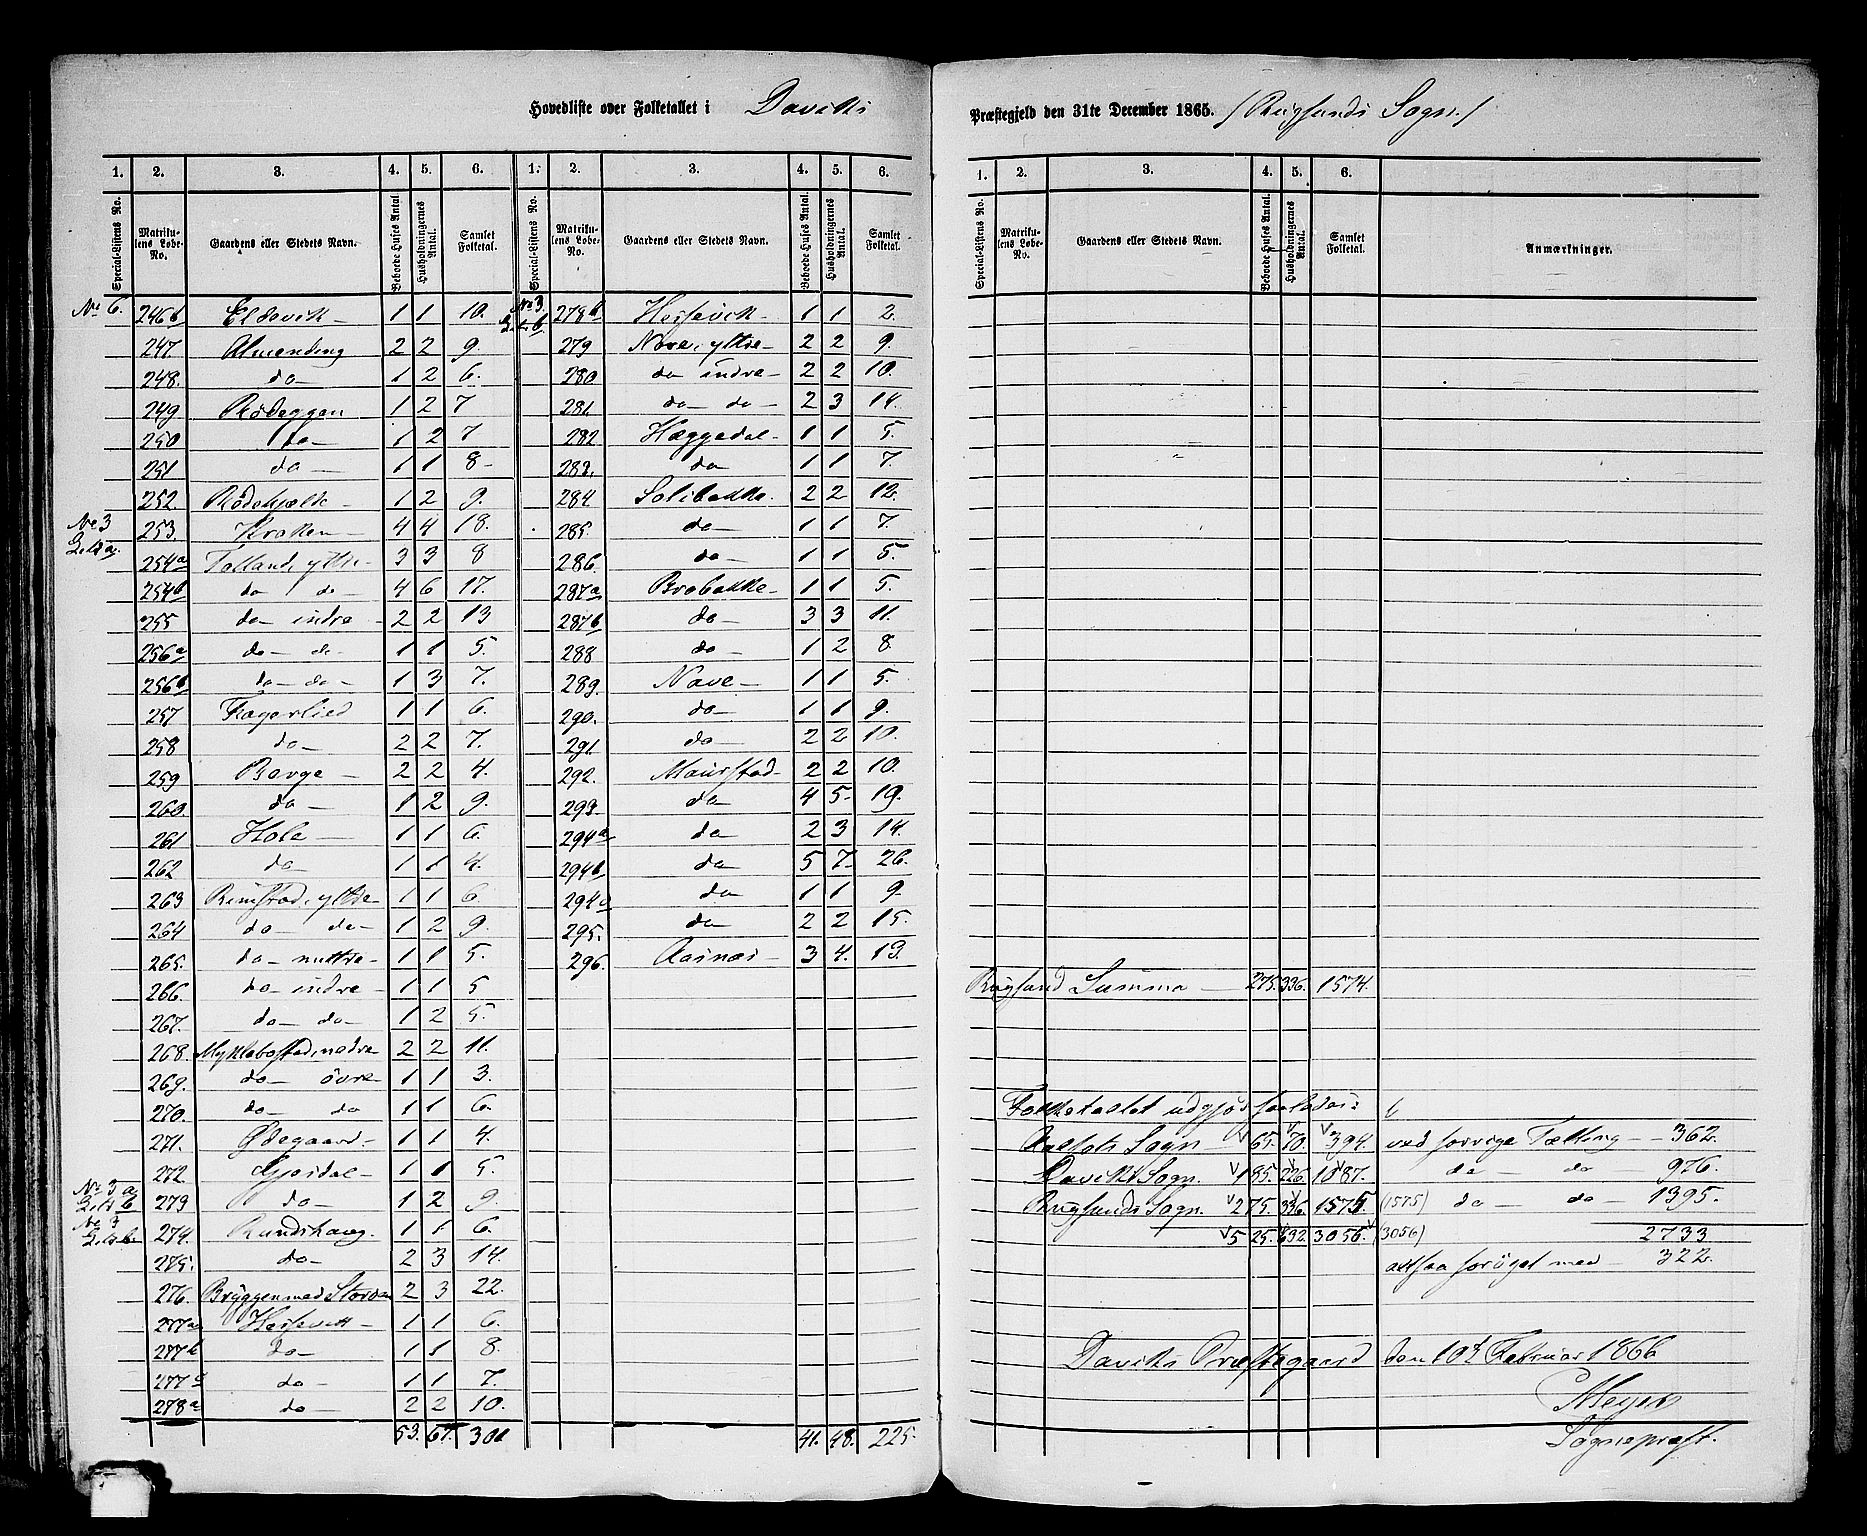 Hovedliste over Folketallet i Daviks Præstegjeld den 31te December 1865. /Rugsunds Sogn./
1. 2. 3. 4. 5. 6. 1. 2. 3. 4. 5. 6.
Special-Listens No. Matrikulens Løbe-No. Gaardens eller Stedets Navn. Beboede Huses Antal. Husholdningernes Antal. Samlet Folketal. Special-Listens No. Matrikulens Løbe-No. Gaardens eller Stedets Navn. Beboede Huses Antal. Husholdningernes Antal. Samlet Folketal.
No 6. 246b Eldevik 1 1 10.
247 Almending 2 2 9.
248. do 1 2 6.
249 Rødeggen 1 2 7
250 do 1 2 7
251 do 1 1 8
252. Rødehjelle 1 2 9.
No 3 253. Kroken 4 4 18.
254a Totland, yttre 3 3 8
254b do do 4 6 17.
255 do indre 2 2 13
256a do do 1 1 5.
256b do do 1 3 7.
257 Fagerlied 1 1 6.
258 do 2 2 7.
259 Berge 2 2 4.
260. do 1 2 9.
261 Hole 1 1 6.
262 do 1 1 4.
263 Rimstad, yttre 1 1 6
264 do do 1 2 9.
265. do mittre 1 1 5.
266. do indre 1 1 5
267. do do 1 2 5.
268. Myklebostad, nedre 2 2 11.
269. do øvre 1 1 3.
270. do do 1 1 6.
271. Ødegaard 1 1 4.
272 Gjerdal 1 1 5.
No 3 a 273 do 1 2 9.
No 3 274. Rundehaug. 1 1 6.
275. do 2 3 14.
276. Bryggen med Storøen 2 3 22.
277a Hessevik 1 1 6.
277b do 1 1 8.
277c do 1 1 7.
278a do 2 2 10.
53. 67. 301
No 3 278b Hessevik 1 1 2.
279 Nore, yttre 2 2 9.
280 do indre 2 2 10.
281. do do 2 3 14.
282 Hæggedal 1 1 5.
283. do 1 1 7.
284 Solibakke. 2 2 12.
285. do 1 1 7.
286. do 1 1 5.
287a Brobakke 1 1 5.
287b do 3 3 11.
288 do 1 2 8.
289. Nave 1 1 5.
290. do 1 1 9.
291. do 2 2 10.
292. Maurstad 2 2 10.
293. do 4 5 19.
294a do 2 3 14.
294b do 5 7 26.
294c do 1 1 9
295. do 2 2 15.
296. Aasnæs 3 4. 13.
41. 48. 225.
1. 2. 3. 4. 5. 6.
Special-Listens No. Matrikulens Løbe-No. Gaardens eller Stedets Navn. Beboede Huses Antal. Husholdningernes Antal. Samlet Folketal. Anmærkninger.
Rugsund Summa 275. 336. 1574.
Folketallet udgjør saaledes:
Aalfots Sogn 65. 70. 394. ved forrige Tælling 362.
Daviks Sogn. 185. 226. 1087. do do 976.
Rugsunds Sogn. 275. 336. 1575 (1575) do do 1395.
525. 632. 3056. (3056) 2733
altsaa forøget med 322.
Daviks Præstegaard den 10d Februar 1866
Meyer
Sognepræst.